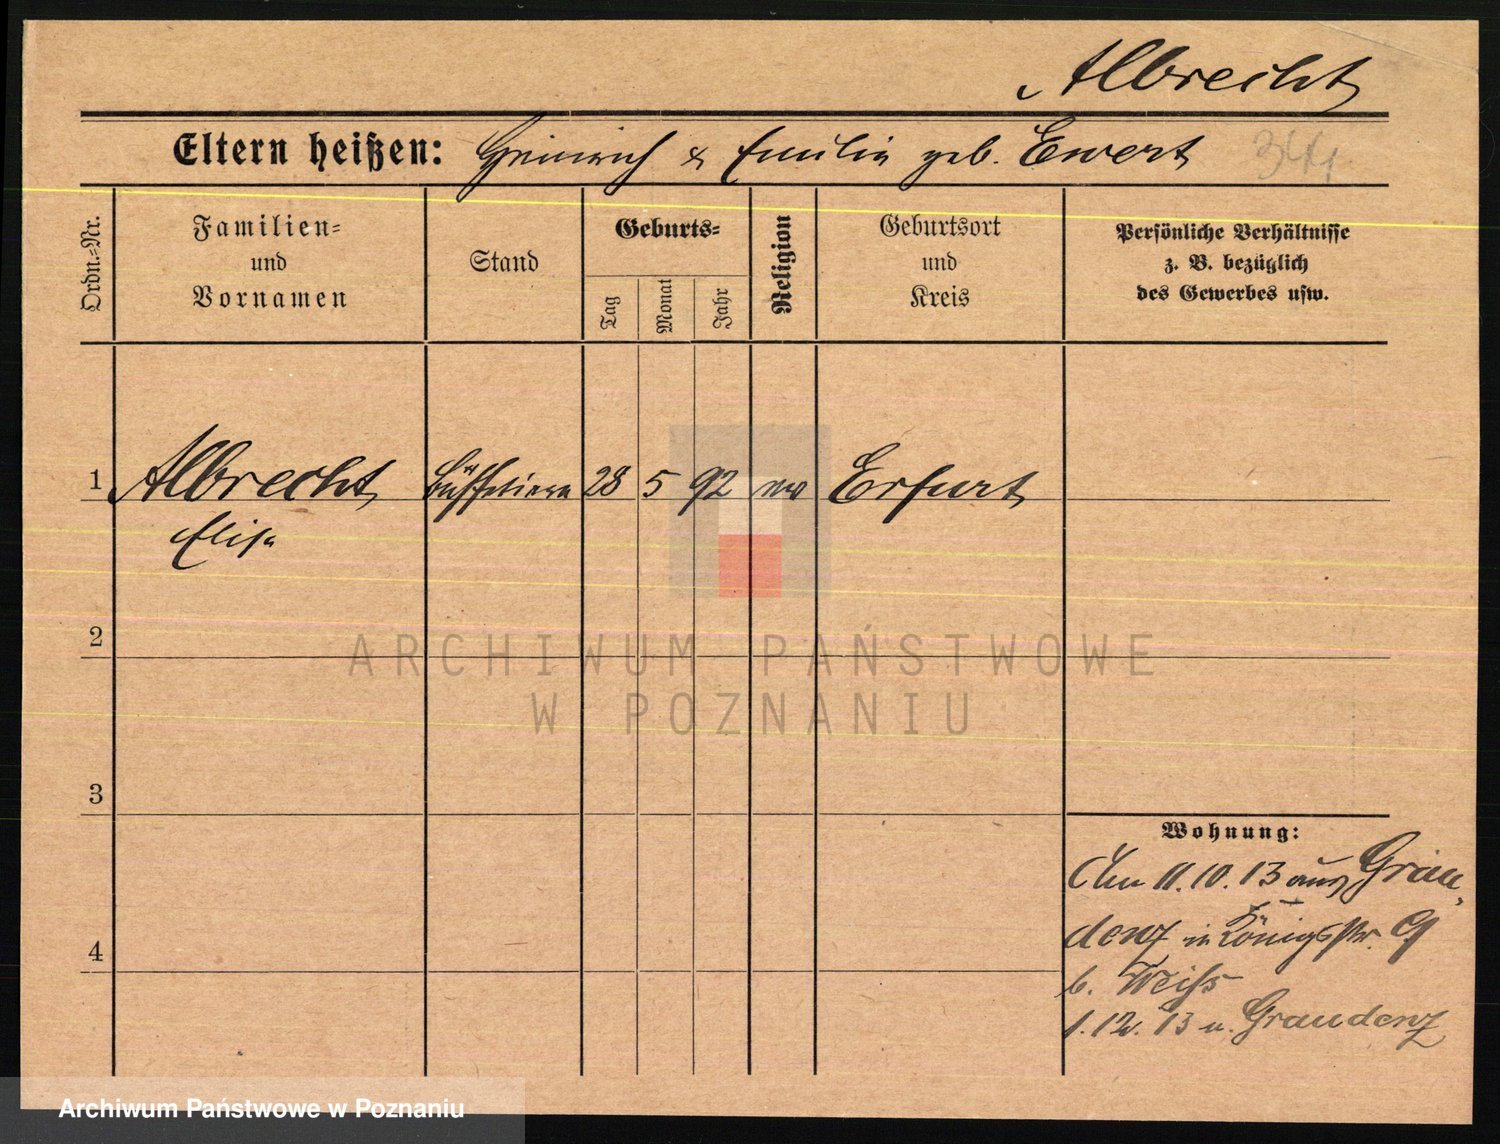 Albrecht
Eltern heißen: Heinrich & Emilie geb. Ewert
Ordn.-Nr.
Familien-
und
Vornamen
Stand
Geburts-
Tag
Monat
Jahr
Religion
Geburtsort
und
Kreis
Persönliche Verhältnisse
z. B. bezüglich
des Gewerbes usw.
1 Albrecht Büffetiere 28 5 92 ev Erfurt
Elise
2
ARCHIWUM PAŃSTWOWE
W POZNANIU
3
Wohnung:
Am 11.10.13 aus Grau-
4
denz in Königsstr. 9
b. Weiss
1.12.13 n. Graudenz
Archiwum Państwowe w Poznaniu